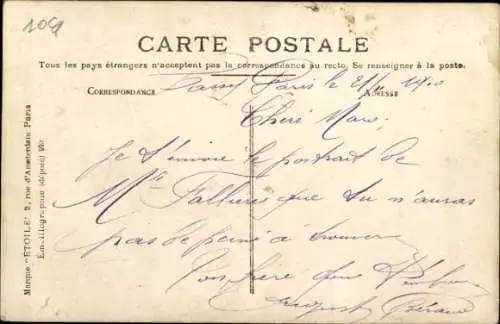 109
CARTE POSTALE
Tous les pays étrangers n'acceptent pas la correspondance au recto. Se renseigner à la poste.
CORRESPONDANCE
ADRESSE
Passy Paris le 21
Chère Marie,
Je t'envoie le portrait de
Mr Fallières que tu n'auras
pas de peine à trouver
Ton frère qui
August
Marque "ÉTOILE" 2, rue d'Amsterdam Paris